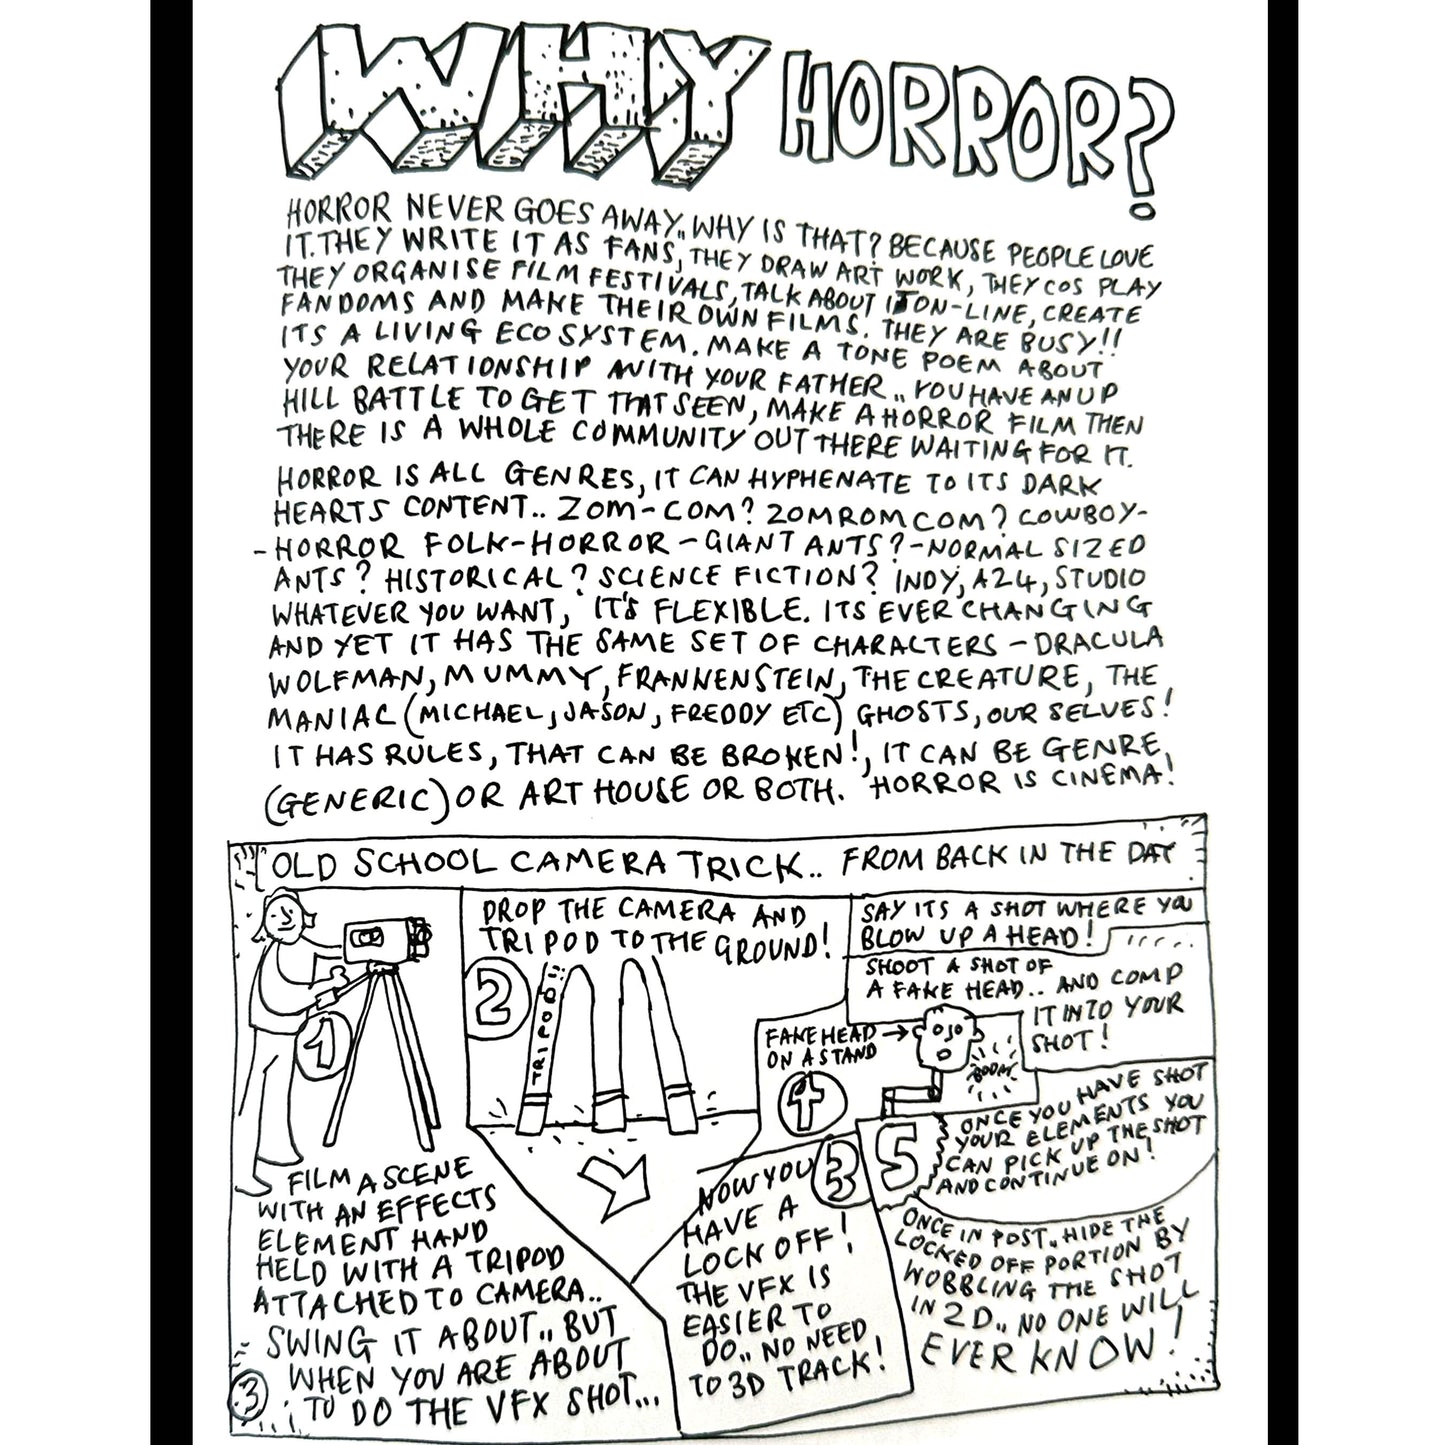 WHY HORROR?
HORROR NEVER GOES AWAY.. WHY IS THAT? BECAUSE PEOPLE LOVE
IT. THEY WRITE IT AS FANS, THEY DRAW ART WORK, THEY COS PLAY
THEY ORGANISE FILM FESTIVALS, TALK ABOUT IT ON-LINE, CREATE
FANDOMS AND MAKE THEIR OWN FILMS. THEY ARE BUSY!!
ITS A LIVING ECO SYSTEM. MAKE A TONE POEM ABOUT
YOUR RELATIONSHIP WITH YOUR FATHER.. YOU HAVE AN UP
HILL BATTLE TO GET THAT SEEN, MAKE A HORROR FILM THEN
THERE IS A WHOLE COMMUNITY OUT THERE WAITING FOR IT.
HORROR IS ALL GENRES, IT CAN HYPHENATE TO ITS DARK
HEARTS CONTENT.. ZOM-COM? ZOMROMCOM? COWBOY-
-HORROR FOLK-HORROR - GIANT ANTS? - NORMAL SIZED
ANTS? HISTORICAL? SCIENCE FICTION? INDY, A24, STUDIO
WHATEVER YOU WANT, IT'S FLEXIBLE. ITS EVER CHANGING
AND YET IT HAS THE SAME SET OF CHARACTERS - DRACULA
WOLFMAN, MUMMY, FRANKENSTEIN, THE CREATURE, THE
MANIAC (MICHAEL, JASON, FREDDY ETC) GHOSTS, OUR SELVES!
IT HAS RULES, THAT CAN BE BROKEN!, IT CAN BE GENRE,
(GENERIC) OR ART HOUSE OR BOTH. HORROR IS CINEMA!
OLD SCHOOL CAMERA TRICK.. FROM BACK IN THE DAY
1
FILM A SCENE
WITH AN EFFECTS
ELEMENT HAND
HELD WITH A TRIPOD
ATTACHED TO CAMERA..
SWING IT ABOUT.. BUT
WHEN YOU ARE ABOUT
TO DO THE VFX SHOT...
3
DROP THE CAMERA AND
TRIPOD TO THE GROUND!
2
TRIPOD!!
3
NOW YOU
HAVE A
LOCK OFF!
THE VFX IS
EASIER TO
DO.. NO NEED
TO 3D TRACK!
SAY ITS A SHOT WHERE YOU
BLOW UP A HEAD!
SHOOT A SHOT OF
A FAKE HEAD.. AND COMP
IT INTO YOUR
SHOT!
FAKE HEAD
ON A STAND
4
BOOM
5
ONCE YOU HAVE SHOT
YOUR ELEMENTS YOU
CAN PICK UP THE SHOT
AND CONTINUE ON!
ONCE IN POST.. HIDE THE
LOCKED OFF PORTION BY
WOBBLING THE SHOT
IN 2D.. NO ONE WILL
EVER KNOW!